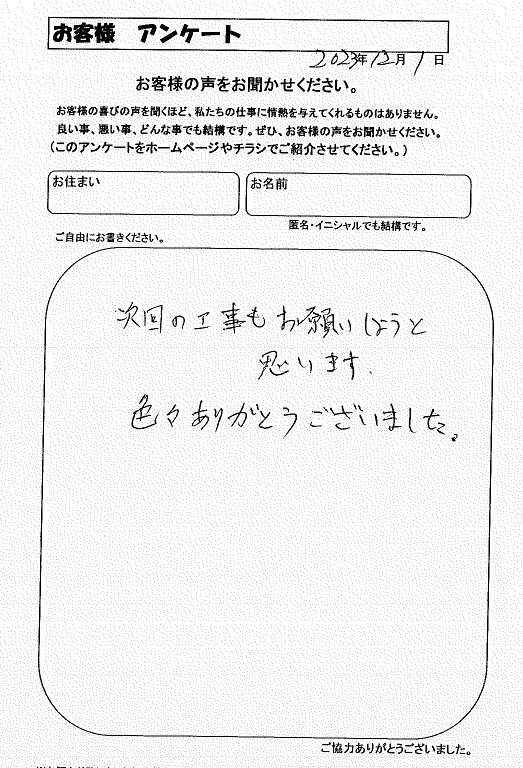 お客様 アンケート
2023年12月1日
お客様の声をお聞かせください。
お客様の喜びの声を聞くほど、私たちの仕事に情熱を与えてくれるものはありません。
良い事、悪い事、どんな事でも結構です。ぜひ、お客様の声をお聞かせください。
(このアンケートをホームページやチラシでご紹介させてください。)
お住まい
お名前
匿名・イニシャルでも結構です。
ご自由にお書きください。
次回の工事もお願いしようと
思います.
色々ありがとうございました。
ご協力ありがとうございました。